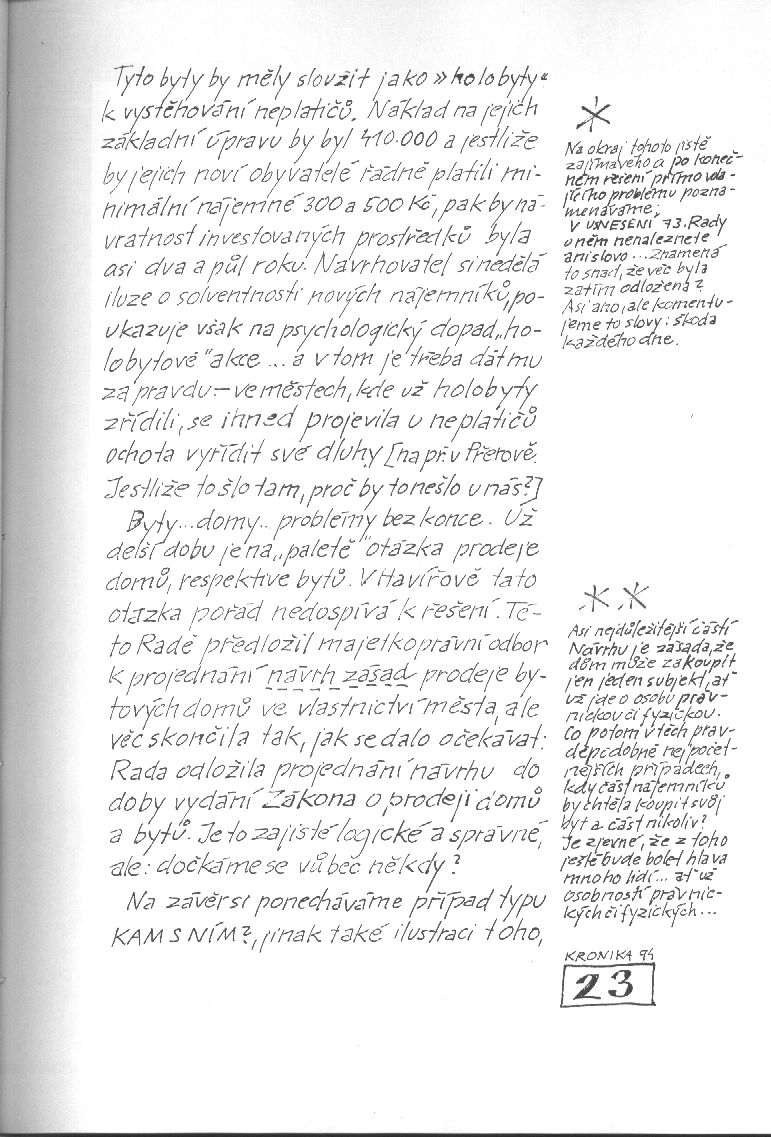 Tyto byty by měly sloužit jako »holobyty«
k vystěhování neplatičů. Náklad na jejich
základní úpravu by byl 410.000 a jestliže
by jejich noví obyvatelé řádně platili mi-
nimální nájemné 300 a 500 Kč, pak by ná-
vratnost investovaných prostředků byla
asi dva a půl roku. Navrhovatel si nedělá
iluze o solventnosti nových nájemníků, po-
ukazuje však na psychologický dopad „ho-
lobytové" akce ... a v tom je třeba dát mu
za pravdu – ve městech, kde už holobyty
zřídili, se ihned projevila u neplatičů
ochota vyřídit své dluhy [např. v Přerově.
Jestliže to šlo tam, proč by to nešlo u nás?]
Byty...domy.. problémy bez konce. Už
delší dobu je na „paletě" otázka prodeje
domů, respektive bytů. V Havířově tato
otázka pořád nedospívá k řešení. Té-
to Radě předložil majetkoprávní odbor
k projednání návrh zásad prodeje by-
tových domů ve vlastnictví města, ale
věc skončila tak, jak se dalo očekávat:
Rada odložila projednání návrhu do
doby vydání Zákona o prodeji domů
a bytů. Je to zajisté logické a správné,
ale: dočkáme se vůbec někdy?
Na závěr si ponecháváme případ typu
KAM S NÍM?, jinak také ilustraci toho,
*
Na okraj tohoto jistě
zajímavého a po koneč-
ném řešení přímo vola-
jícího problému pozna-
menáváme;
V USNESENÍ 73. Rady
o něm nenaleznete
ani slovo ... Znamená
to snad, že věc byla
zatím odložena?
Asi ano, ale komentu-
jeme to slovy: škoda
každého dne.
* *
Asi nejdůležitější částí
Návrhu je zásada, že
dům může zakoupit
jen jeden subjekt, ať
už jde o osobu práv-
nickou či fyzickou.
Co potom v těch prav-
děpodobně nejpočet-
nějších případech,
kdy část nájemníků
by chtěla koupit svůj
byt a část nikoliv?
Je zjevné, že z toho
ještě bude bolet hlava
mnoho lidí... ať už
osobností právnic-
kých či fyzických...
KRONIKA 94
23